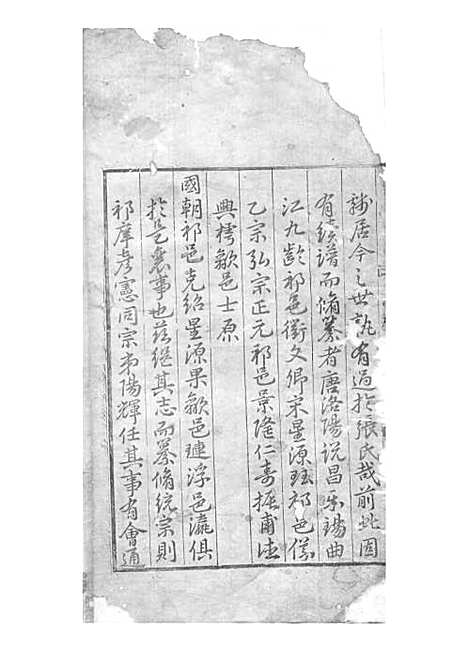 誇居今之世孰有過於張氏哉前此固
有續譜而脩纂者唐洛陽説昌朱瑒曲
江九齡祁邑衢文卿宋星源珐祁邑儀
乙宗弘宗正元祁邑景隆仁壽振甫德
興樗歙邑士原
國朝祁邑克紹星源果歙邑璉浮邑瀛俱
於是襄事也茲繼其志而纂脩統宗則
祁庠彥憲同宗弟陽輝任其事有會通